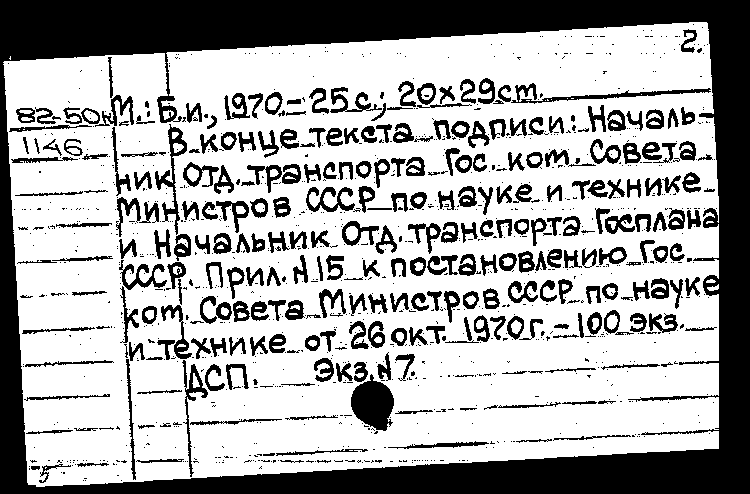 2.
82-50н М.: Б.и., 1970.- 25 с.; 20х29cm.
1146 В конце текста подписи: Началь-
ник Отд. транспорта Гос. ком. Совета
Министров СССР по науке и технике
и Начальник Отд. транспорта Госплана
СССР. Прил. N 15 к постановлению Гос.
ком. Совета Министров СССР по науке
и технике от 26 окт. 1970 г. - 100 экз.
ДСП. Экз. N 7.
5